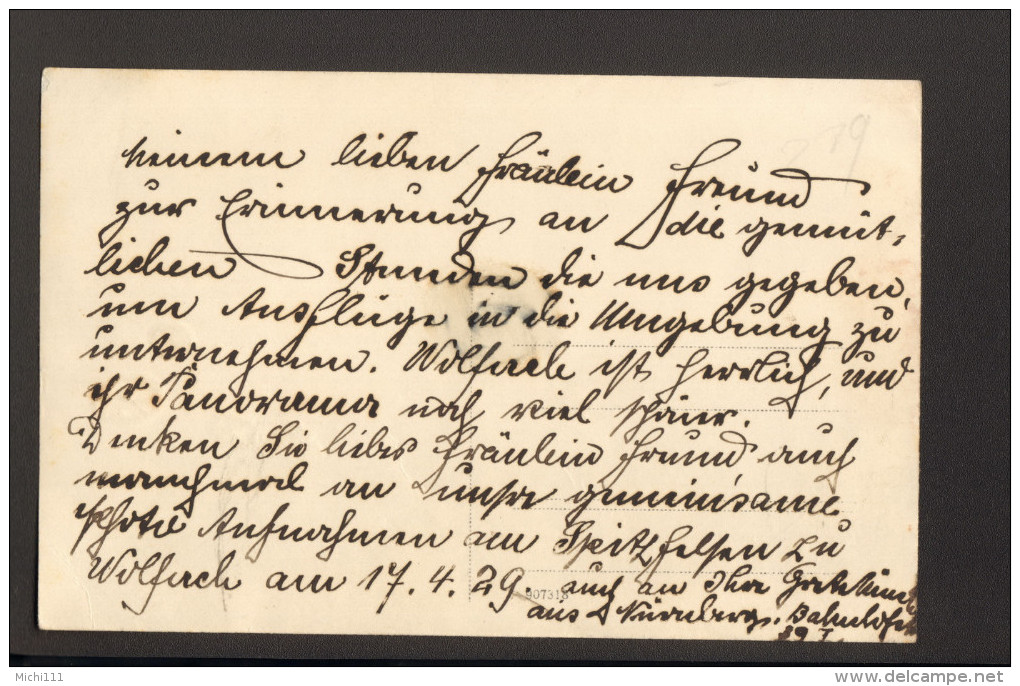 meinem lieben Fräulein Freund
zur Erinnerung an die gemüt-
lichen Stunden die uns gegeben,
um Ausflüge in die Umgebung zu
unternehmen. Wolfach ist herrlich, und
ihr Panorama noch viel schöner.
Denken Sie liebes Fräulein Freund auch
manchmal an unsre gemeinsame
Photo Aufnahmen am Spitzfelsen zu
Wolfach am 17.4.29. auch an Ihre Grete
907318
aus Nürnberg.
39 I
Michi111
delcampe.net